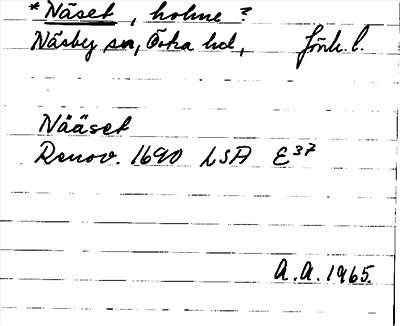 *Näset, holme?
Näsby sn, Östra hd, Jönk. l.
Nääset
Renov. 1690 LSA E³⁷
A.A. 1965.